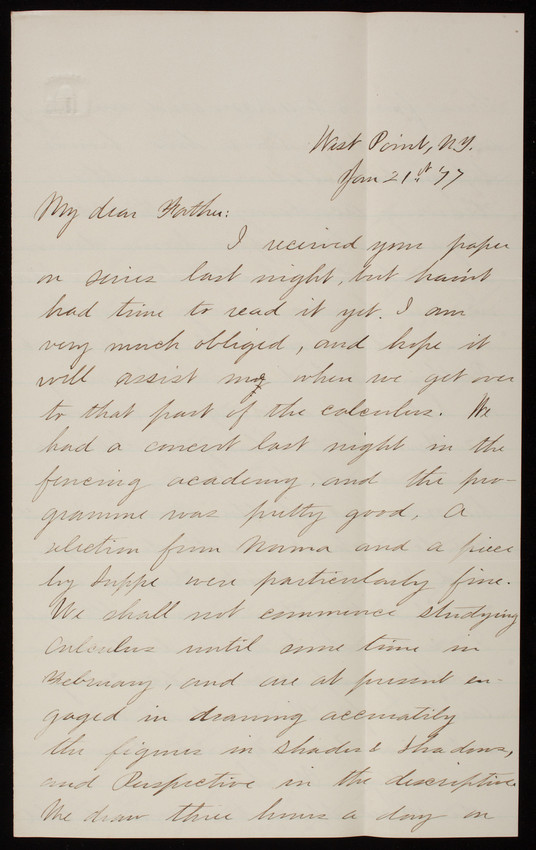 West Point, N.Y.
Jan 21st '77
My dear Father:
I received your paper
on series last night, but havn't
had time to read it yet. I am
very much obliged, and hope it
will assist me when we get over
to that part of the calculus. We
had a concert last night in the
fencing academy, and the pro-
gramme was pretty good. A
selection from Norma and a piece
by Suppe were particularly fine.
We shall not commence studying
Calculus until some time in
February, and are at present en-
gaged in drawing accurately
the figures in Shades & Shadows,
and Perspective in the descriptive.
We draw three hours a day on